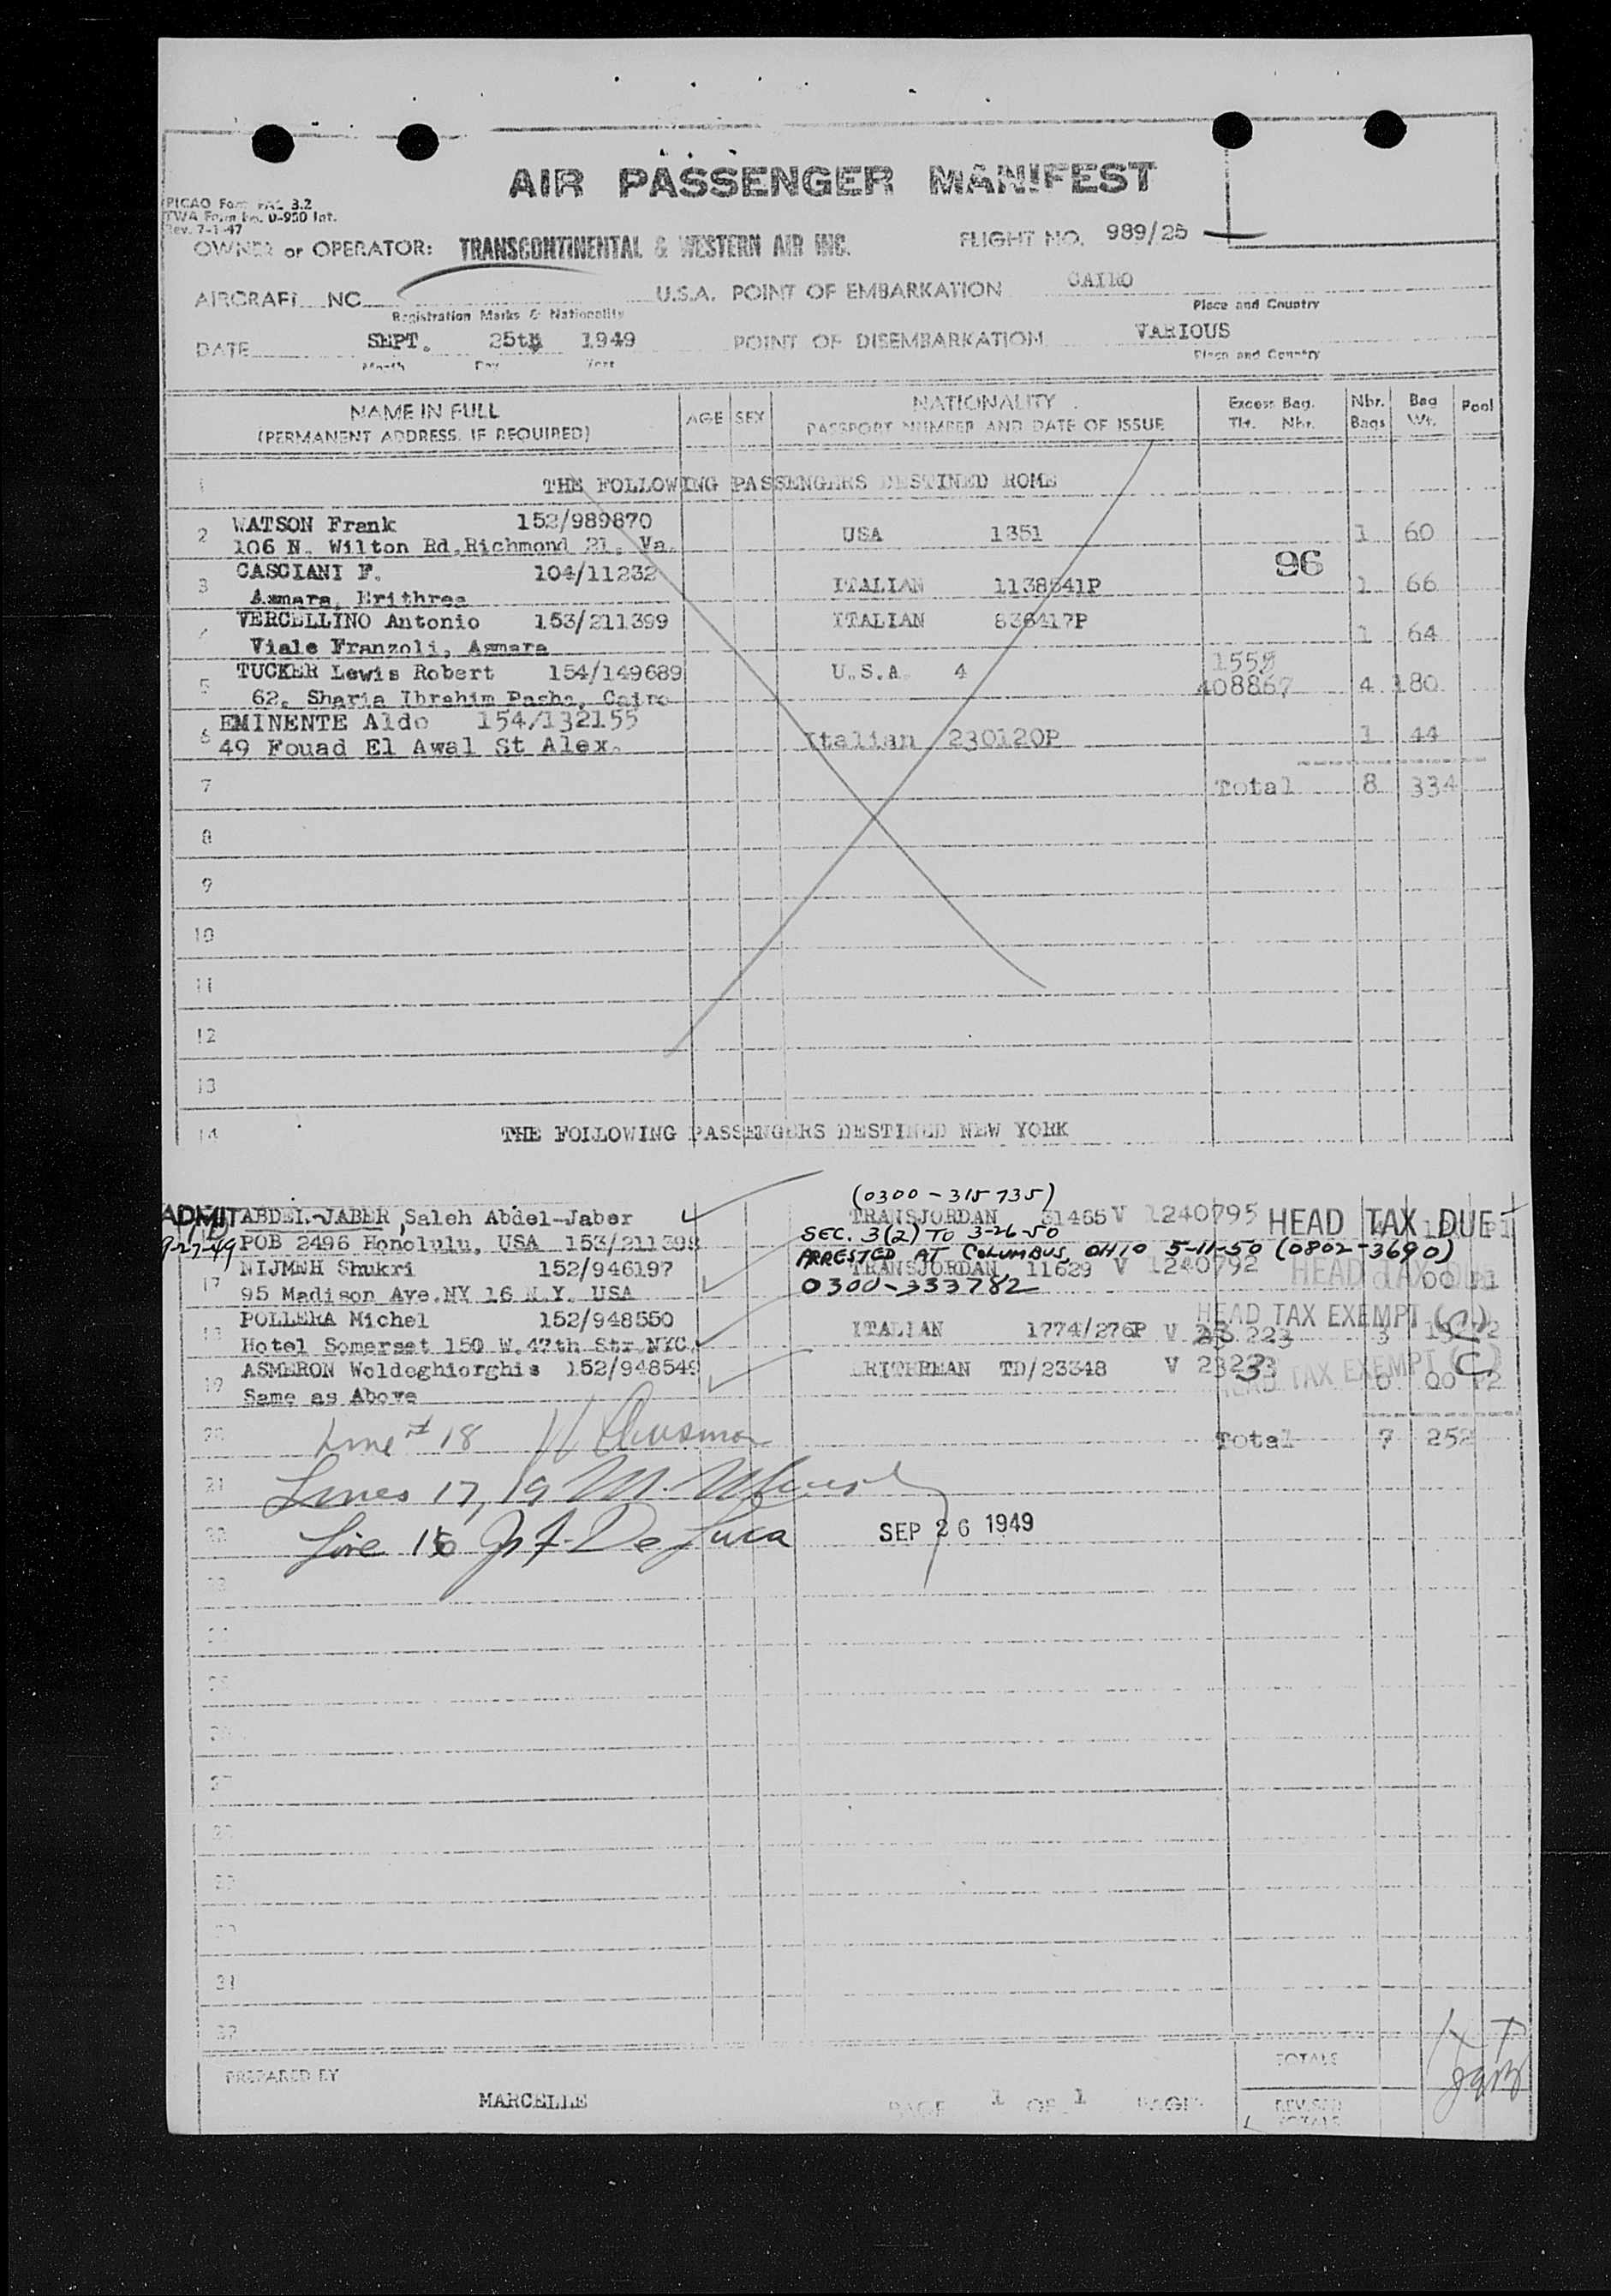 AIR PASSENGER MANIFEST
PICAO Form FAL 3.2
TWA Form No. 0-950 Int.
Rev. 7-1-47
OWNER or OPERATOR: TRANSCONTINENTAL & WESTERN AIR INC. FLIGHT NO. 989/25
AIRCRAFT NC U.S.A. POINT OF EMBARKATION CAIRO
Registration Marks & Nationality Place and Country
DATE SEPT. 25th 1949 POINT OF DISEMBARKATION VARIOUS
Month Day Year Place and Country
NAME IN FULL AGE SEX NATIONALITY Excess Bag. Nbr. Bag Pool
(PERMANENT ADDRESS, IF REQUIRED) PASSPORT NUMBER AND DATE OF ISSUE Tkt. Nbr. Bags Wt.
1 THE FOLLOWING PASSENGERS DESTINED ROME
2 WATSON Frank 152/989870 USA 1351 1 60
106 N. Wilton Rd.Richmond 21, Va.
96
3 CASCIANI F. 104/11232 ITALIAN 1138541P 1 66
Asmara, Erithrea
4 VERCELLINO Antonio 153/211399 ITALIAN 836417P 1 64
Viale Franzoli, Asmara
5 TUCKER Lewis Robert 154/149689 U.S.A. 4 1555
62, Sharia Ibrahim Pasha, Cairo 408867 4 180
6 EMINENTE Aldo 154/132155
49 Fouad El Awal St Alex. Italian 230120P 1 44
7 Total 8 334
8
9
10
11
12
13
14 THE FOLLOWING PASSENGERS DESTINED NEW YORK
(0300-315735)
ADMIT ABDEL-JABER, Saleh Abdel-Jaber TRANSJORDAN 31465 V 1240795 HEAD TAX DUE
9-27-49 POB 2496 Honolulu, USA 153/211399 SEC. 3(2) TO 3-26-50
ARRESTED AT COLUMBUS, OHIO 5-11-50 (0802-3690)
17 NIJMEH Shukri 152/946197 TRANSJORDAN 11629 V 1240792 HEAD TAX DUE 00
95 Madison Ave.NY 16 N.Y. USA 0300-333782
18 POLLERA Michel 152/948550 ITALIAN 1774/276P V 23 223 HEAD TAX EXEMPT (C) 3
Hotel Somerset 150 W.47th Str NYC.
19 ASMERON Woldeghiorghis 152/948549 ERITHREAN TD/23348 V 23223 HEAD TAX EXEMPT (C) 0 00
Same as Above
20 Line # 18 Total 7 252
21 Lines 17, 19 M.
22 Line 16 De Luca SEP 26 1949
23
24
25
26
27
28
29
30
31
32
PREPARED BY TOTALS
MARCELLE PAGE 1 OF 1 PAGES REVISED
TOTALS